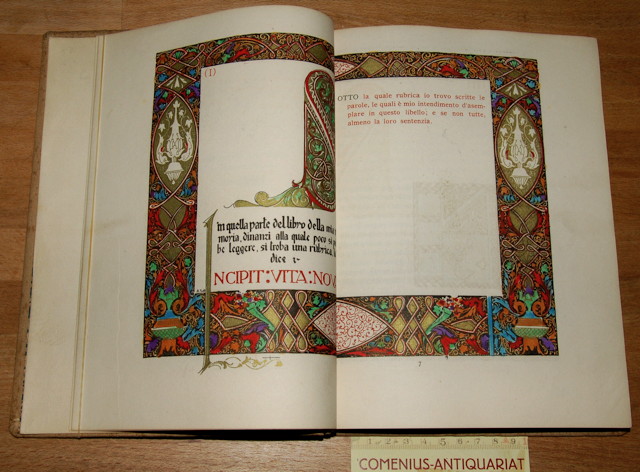 (I)
In quella parte del libro della mia
moria, dinanzi alla quale poco si
be leggere, si troba una rubrica,
dice I-
NCIPIT:VITA:NOV
OTTO la quale rubrica io trovo scritte le
parole, le quali è mio intendimento d'asem-
plare in questo libello; e se non tutte,
almeno la loro sentenzia.
7
1 2 3 4 5 6 7 8 9
COMENIUS-ANTIQUARIAT